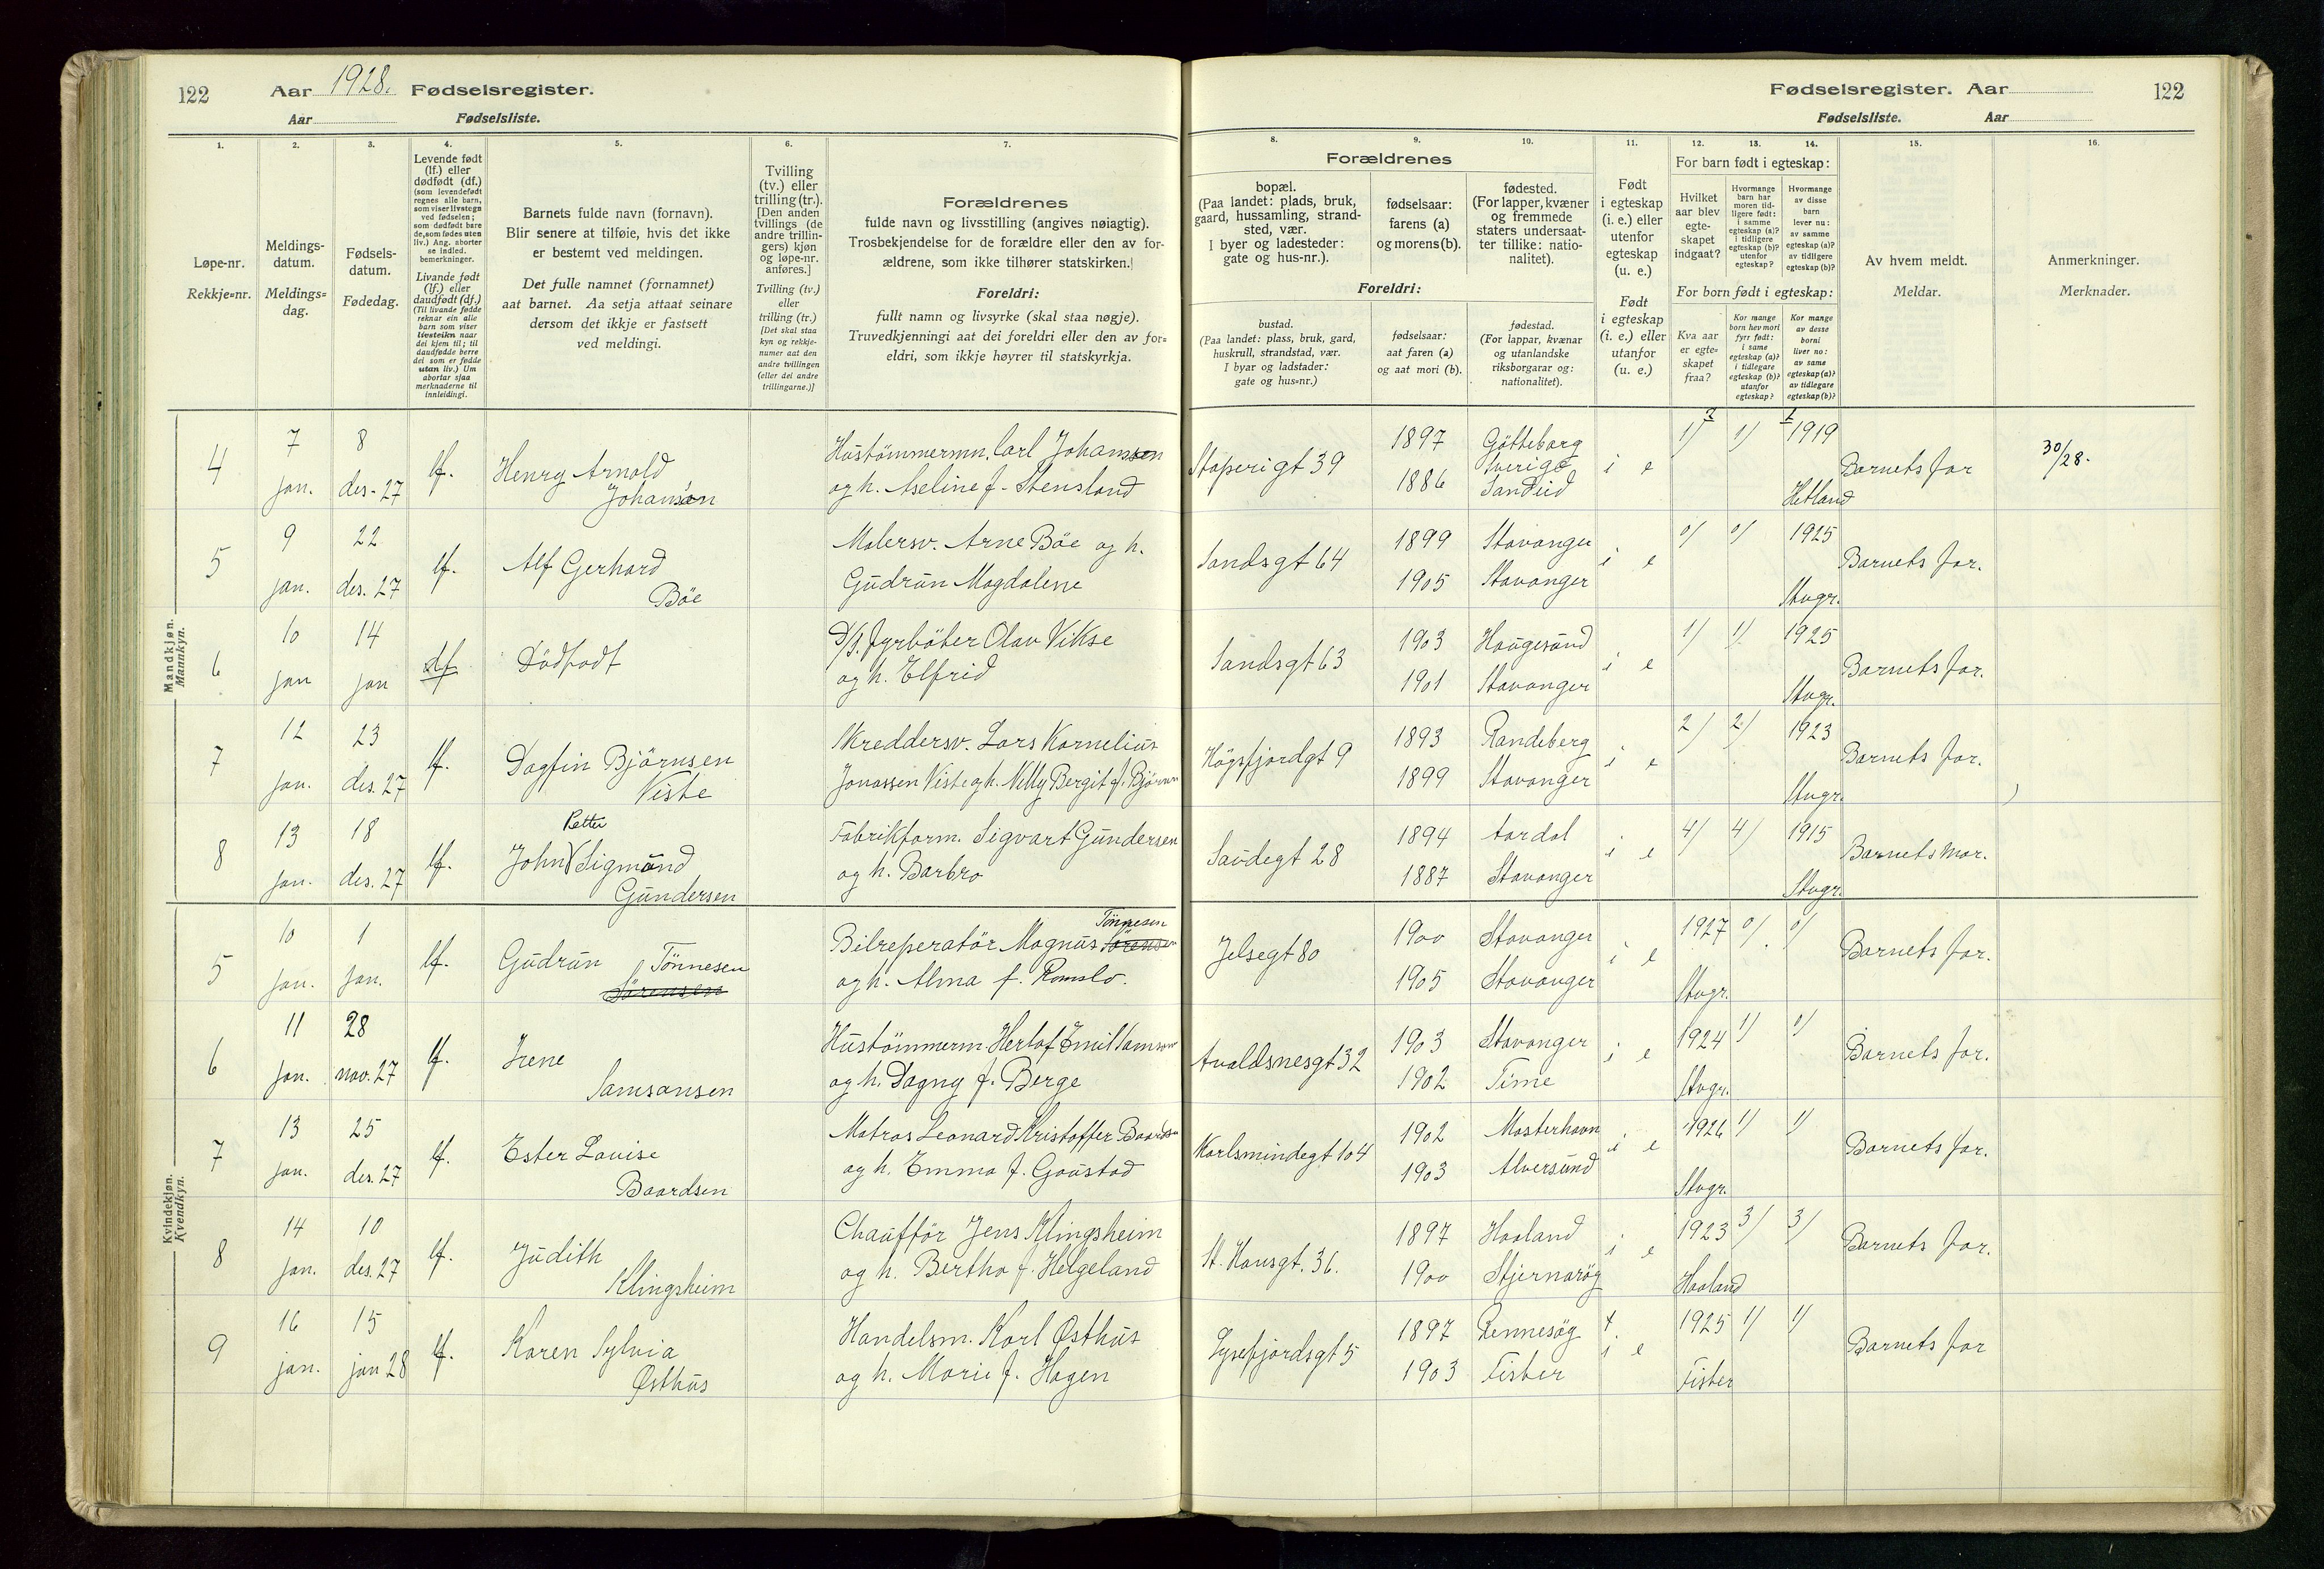 122
Aar 1928. Fødselsregister.
Aar Fødselsliste.
Fødselsregister. Aar 122
Fødselsliste. Aar
1. 2. 3. 4. 5. 6. 7. 8. 9. 10. 11. 12. 13. 14. 15. 16.
Løpe-nr.
Rekkje-nr.
Meldings-
datum.
Meldings-
dag.
Fødsels-
datum.
Fødedag.
Levende født
(lf.) eller
dødfødt (df.)
(som levendefødt
regnes alle barn,
som viser livstegn
ved fødselen;
som dødfødt bare
de, som fødes uten
liv.) Ang. aborter
se indled.
bemerkninger.
Livande født
(lf.) eller
daudfødt (df.)
(Til livande fødde
reknar ein alle
barn som viser
livsteikn naar
dei kjem til; til
daudfødde berre
dei som er fødde
utan liv.) Um
abortar sjaa
merknaderne til
innleidingi.
Barnets fulde navn (fornavn).
Blir senere at tilføie, hvis det ikke
er bestemt ved meldingen.
Det fulle namnet (fornamnet)
aat barnet. Aa setja attaat seinare
dersom det ikkje er fastsett
ved meldingi.
Tvilling
(tv.) eller
trilling (tr.).
[Den anden
tvillings (de
andre trillin-
gers) kjøn
og løpe-nr.
anføres.]
Tvilling (tv.)
eller
trilling (tr.)
[Det skal staa
kyn og rekkje-
numer aat den
andre tvillingen
(eller dei andre
trillingarne.)]
Forældrenes
fulde navn og livsstilling (angives nøiagtig).
Trosbekjendelse for de forældre eller den av for-
ældrene, som ikke tilhører statskirken.
Foreldri:
fullt namn og livsyrke (skal staa nøgje).
Truvedkjenningi aat dei foreldri eller den av for-
eldri, som ikkje høyrer til statskyrkja.
Forældrenes
bopæl.
(Paa landet: plads, bruk,
gaard, hussamling, strand-
sted, vær.
I byer og ladesteder:
gate og hus-nr.).
fødselsaar:
farens (a)
og morens (b).
fødested.
(For lapper, kvæner
og fremmede
staters undersaat-
ter tillike: natio-
nalitet).
Foreldri:
bustad.
(Paa landet: plass, bruk, gard,
huskrull, strandstad, vær.
I byar og ladstader:
gate og hus-nr.)
fødselsaar:
aat faren (a)
og aat mori (b).
fødestad.
(For lappar, kvænar
og utanlandske
riksborgarar og:
nationalitet).
Født
i egteskap
(i. e.) eller
utenfor
egteskap
(u. e.)
Født
i egteskap
(i. e.) eller
utanfor
(u. e.)
For barn født i egteskap:
Hvilket
aar blev
egte-
skapet
indgaat?
Hvormange
barn har
moren tid-
ligere født:
i samme
egteskap (a)?
i tidligere
egteskap (b)?
utenfor
egteskap?
Hvormange
av disse
barn
lever nu:
av samme
egteskap (a)?
av tidligere
egteskap (b)?
For born født i egteskap:
Kva aar
er egte-
skapet
fraa?
Kor mange
born hev mori
fyrr født:
i same
egteskap (a)?
i tidlegare
egteskap (b)?
utanfor
egteskap?
Kor mange
av desse
borni
liver no:
av same
egteskap (a)?
av tidlegare
egteskap (b)?
Av hvem meldt.
Meldar.
Anmerkninger.
Merknader.
Mandkjøn.
Mannkyn.
4 7 8 lf. Henry Arnold Hustömmermn. Carl Johanssen Støperigt 39 1897 Götteborg i e 1/ 1/ 1919 Barnets far 30/28.
jan. des. 27 Johansen og h. Aseline f. Stensland 1886 Sverige Sandeid Hetland
5 9 22 lf. Alf Gerhard Malersv. Arne Böe og h. Sandsgt 64 1899 Stavanger i e 0/ 0/ 1925 Barnets far.
jan. des. 27 Böe Gudrun Magdalene 1905 Stavanger Stvgr.
6 10 14 df Dödfödt D/s. fyrböter Olav Vikse Sandsgt 63 1903 Haugesund i e 1/ 1/ 1925 Barnets far.
jan jan og h. Elfrid 1901 Stavanger Stvgr.
7 12 23 lf. Dagfin Björnsen Skreddersv. Lars Kornelius Högsfjordgt 9 1893 Randeberg i e 2/ 2/ 1923 Barnets far.
jan. des. 27 Viste Jonassen Viste og h. Nelly Bergit f. Björnsen 1899 Stavanger Stvgr.
Petter
8 13 18 lf. John Sigmund Fabrikform. Sigvart Gundersen Saudegt 28 1894 Aardal i e 4/ 4/ 1915 Barnets mor.
jan. des. 27 Gundersen og h. Barbro 1887 Stavanger Stvgr.
Kvindekjøn.
Kvendkyn.
Tönnesen
5 10 1 lf. Gudrun Tönnesen Bilreperatör Magnus Sörensen Jelsegt 80 1900 Stavanger i e 1927 0/ 0/ Barnets far.
jan. jan. Sörensen og h. Alma f. Romslo. 1905 Stavanger Stvgr.
6 11 28 lf. Irene Hustömmerm. Herlof Emil Samsonsen Avaldsnesgt 32 1903 Stavanger i e 1924 1/ 1/ Barnets far.
jan. nov. 27 Samsonsen og h. Dagny f. Berge 1902 Time Stvgr.
7 13 25 lf. Ester Lovise Matros Leonard Kristoffer Baardsen Karlsmindegt 104 1902 Mosterhavn i e 1926 1/ 1/ Barnets far.
jan. des. 27 Baardsen og h. Emma f. Gaustad 1903 Alversund Stvgr.
8 14 10 lf. Judith Chaufför Jens Klingsheim St. Hansgt. 36. 1897 Haaland i e 1923 3/ 3/ Barnets far.
jan. des. 27 Klingsheim og h. Bertha f. Helgeland 1900 Stjernaröy Haaland
9 16 15 lf. Karen Sylvia Handelsm. Karl Østhus Lysefjordsgt 5 1897 Rennesöy i e 1925 1/ 1/ Barnets far
jan. jan 28 Østhus og h. Marie f. Hagen 1903 Fister Fister